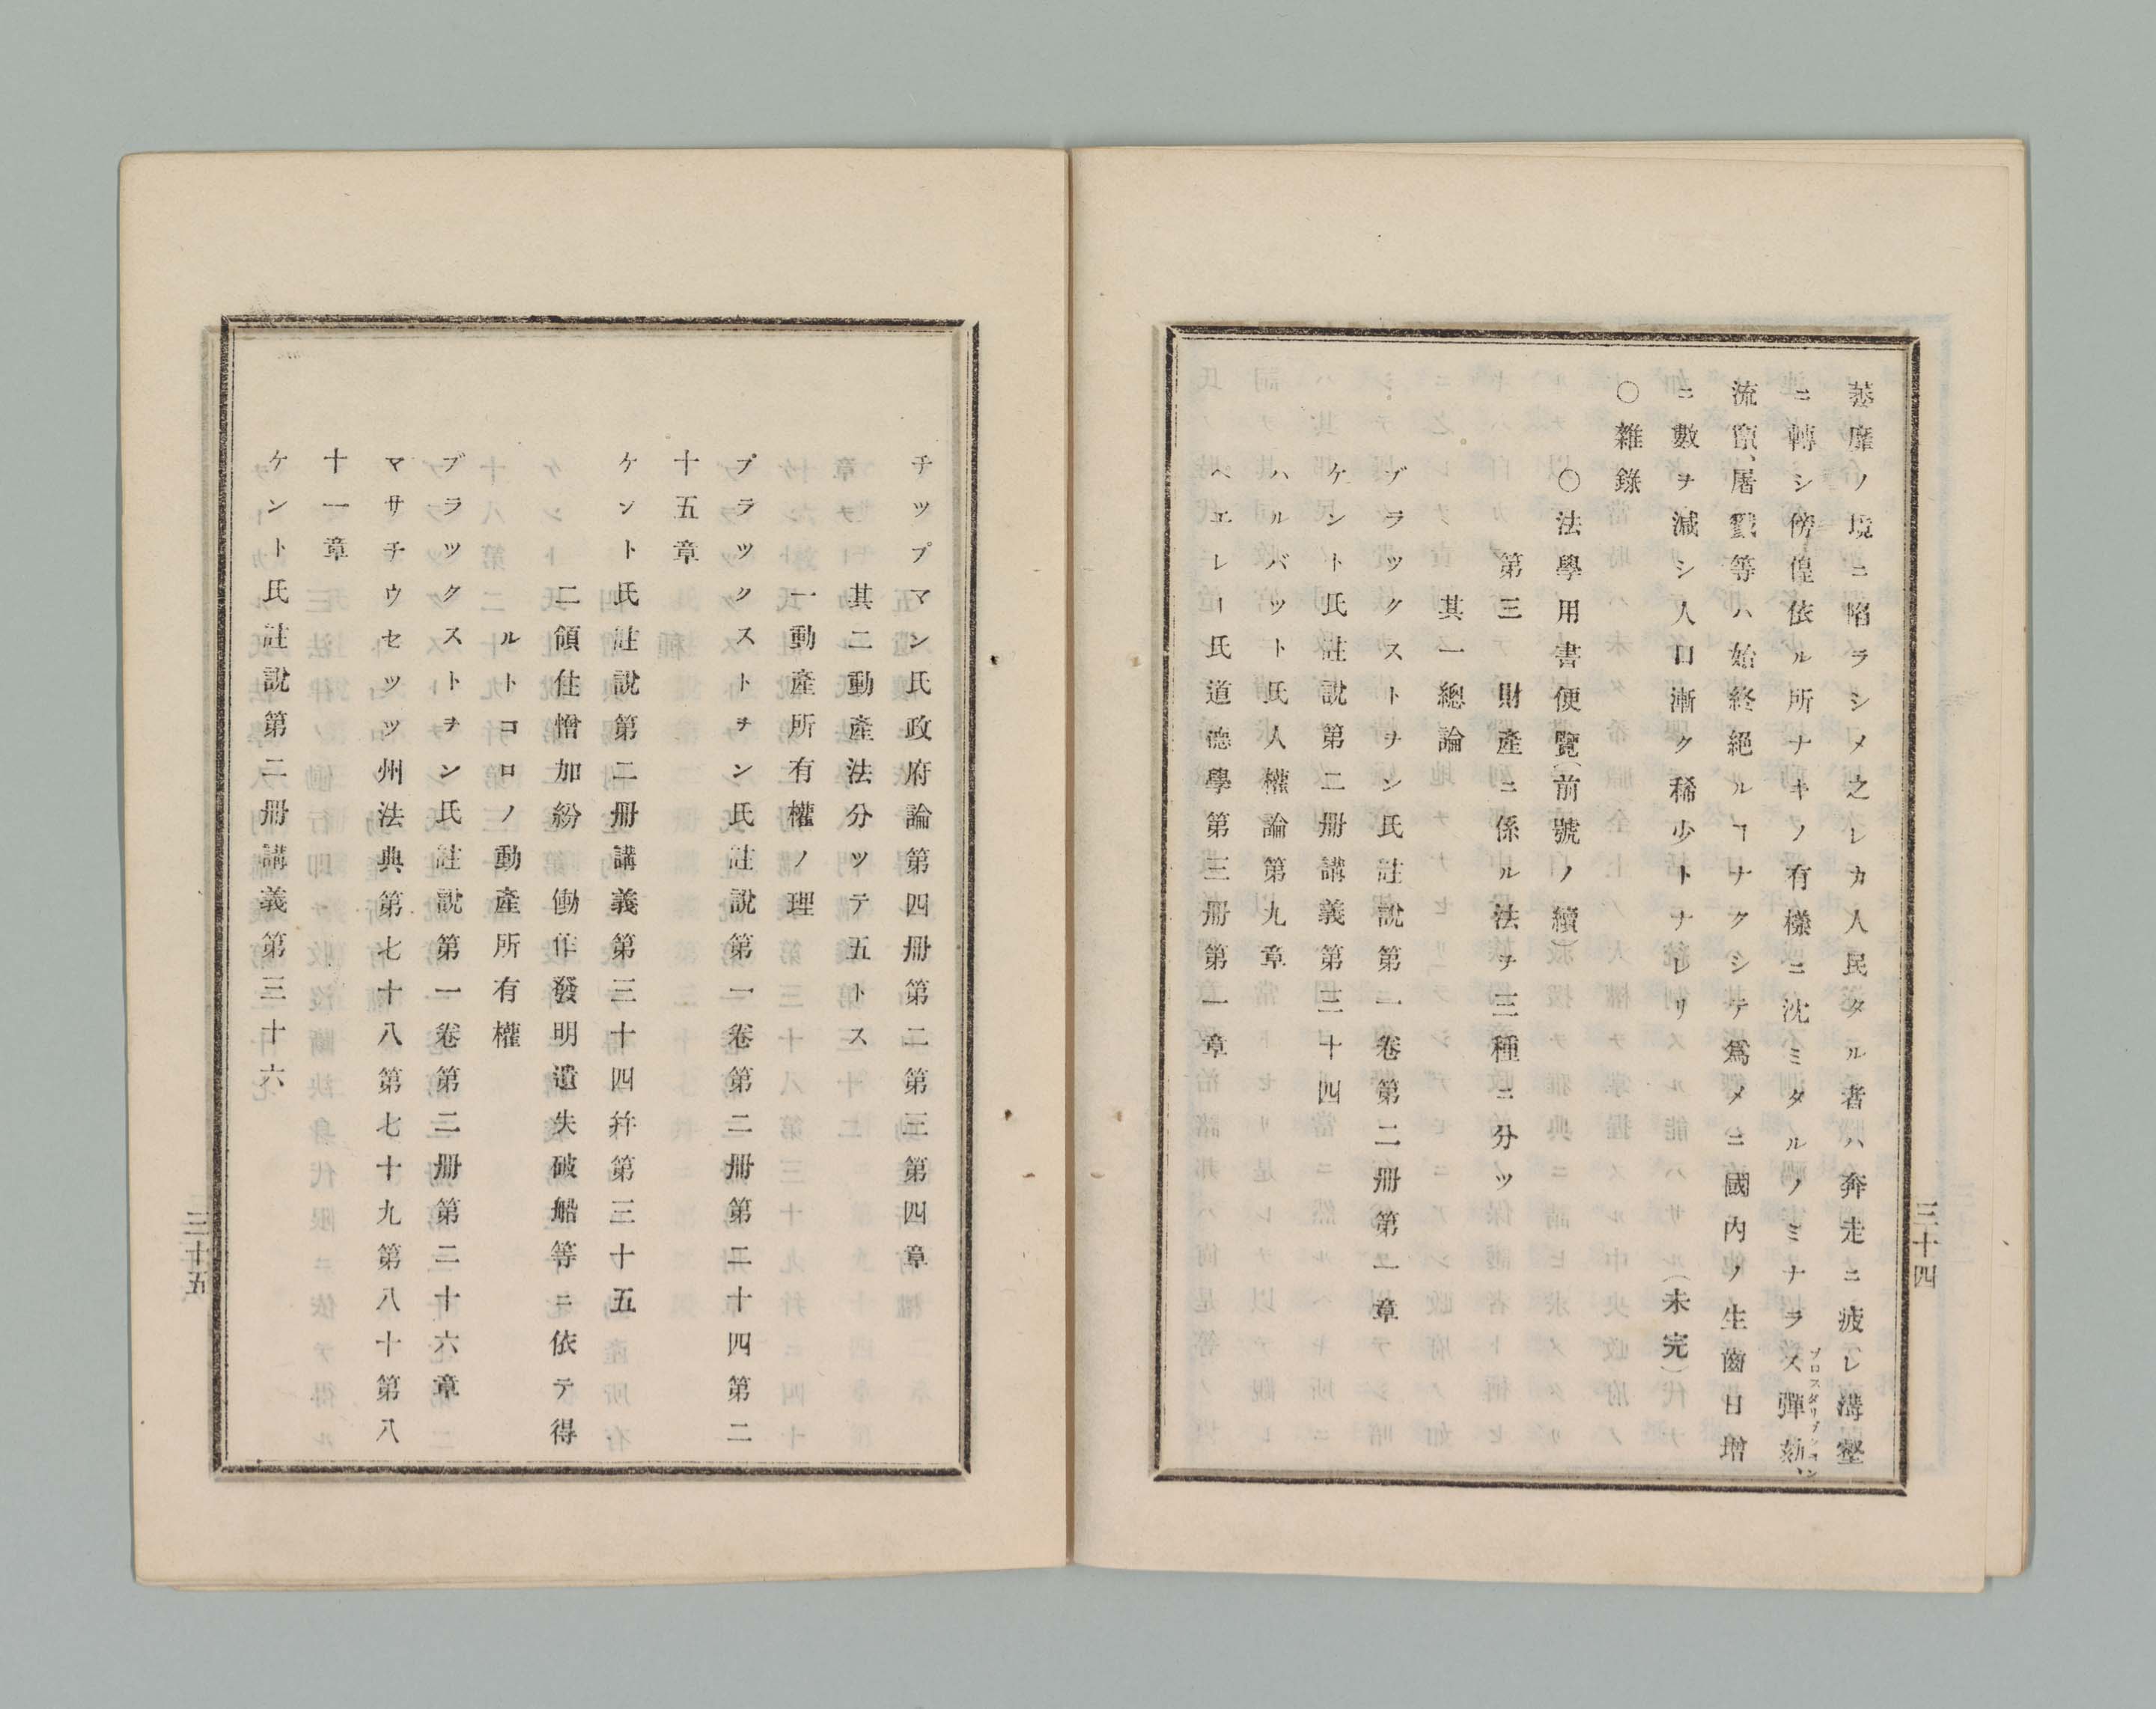 三十四
蒸靡ノ境ニ陷ラシメ之レカ人民タル者ハ奔走ニ疲レ溝壑
ニ轉シ傍偟依ル所ナキノ有樣ニ沈ミタルノミナラス彈劾、
プロスクリプシヨン
流竄、屠戮等ハ始終絕ルヿナクシテ爲メニ國內ノ生齒日增
ニ數ヲ減シ人口漸ク稀少トナレリ（未完）
○雜錄
○法學用書便覽（前號ノ續）
第三 財產ニ係ル法ヲ三種ニ分ツ
其一總論
ブラックストヲン氏註說第一卷第二册第一章
ケント氏註說第二册講義第三十四
ハルバット氏人權論第九章
ペエレー氏道德學第三册第一章
チップマン氏政府論第四册第二第三第四章
其二動產法分ツテ五トス
一動產所有權ノ理
ブラックストヲン氏註說第一卷第二册第二十四第二
十五章
ケント氏註說第二册講義第三十四幷第三十五
二領住增加紛働作發明遺失破船等ニ依テ得
ルトコロノ動產所有權
ブラックストヲン氏註說第一卷第二册第二十六章
マサチウセッツ州法典第七十八第七十九第八十第八
十一章
ケント氏註說第二册講義第三十六
三十五